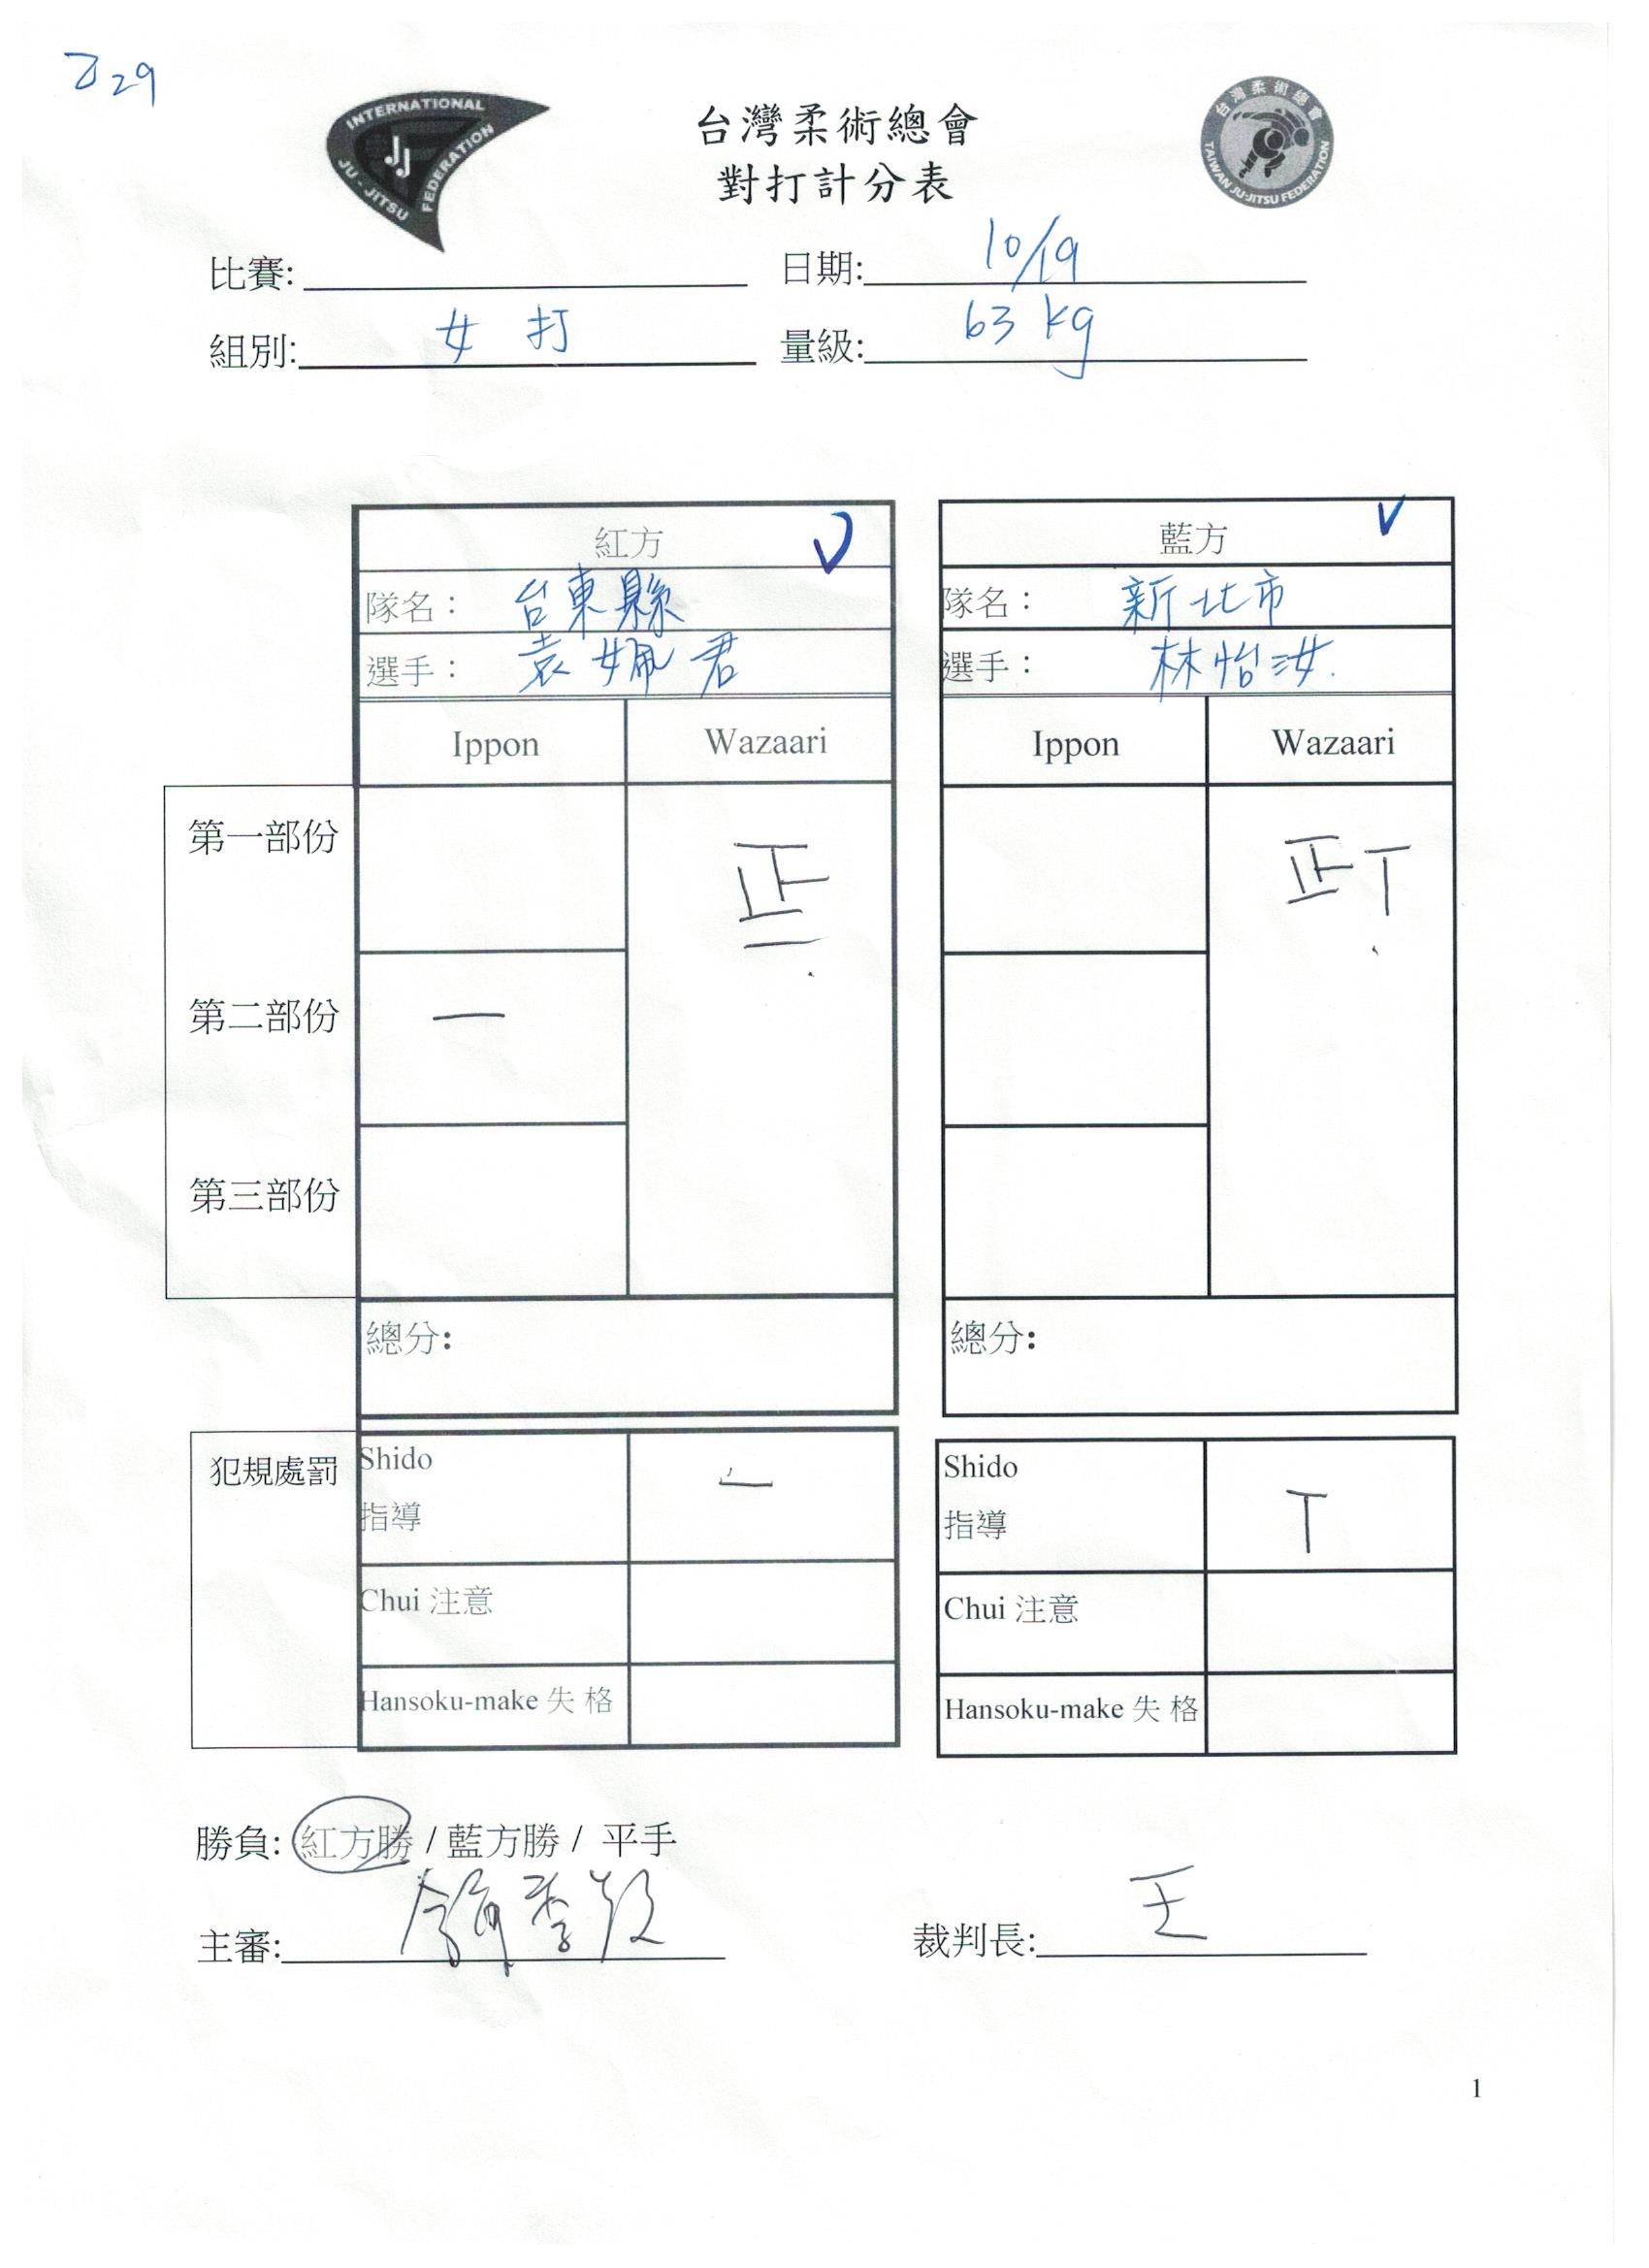 乙29
INTERNATIONAL JU-JITSU FEDERATION
JJ
台灣柔術總會
TAIWAN JU-JITSU FEDERATION
台灣柔術總會
對打計分表
比賽: 日期: 10/19
組別: 女打 量級: 63 kg
紅方 藍方
隊名: 台東縣 隊名: 新北市
選手: 袁姵君 選手: 林怡汝.
Ippon Wazaari Ippon Wazaari
第一部份 正一 正丅
第二部份 一
第三部份
總分: 總分:
犯規處罰
Shido 指導 一 Shido 指導 丅
Chui 注意 Chui 注意
Hansoku-make 失格 Hansoku-make 失格
勝負: 紅方勝 / 藍方勝 / 平手
主審: 裁判長: 王
1